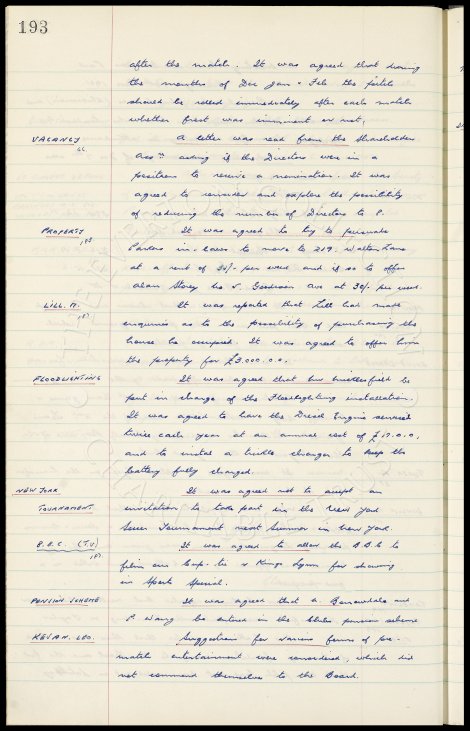 193
after the match. It was agreed that during
the months of Dec Jan & Feb the pitch
should be rolled immediately after each match
whether frost was imminent or not.
VACANCY
A letter was read from the Shareholders
Assn asking if the Directors were in a
position to receive a nomination. It was
agreed to consider and explore the possibility
of reducing the number of Directors to
PROPERTY
It was agreed to try to persuade
Parkers in-laws to move to 219. Walton Lane
at a rent of 30/- per week and if so to offer
Alan Storey Goodison Ave at 30/- per week.
LILL. M.
It was reported that Lill had made
enquiries as to the possibility of purchasing the
house he occupied. It was agreed to offer him
the property for £3.000.0.0.
FLOODLIGHTING
It was agreed that be
put in charge of the Floodlighting installation.
It was agreed to have the Diesel Engine serviced
twice each year at an annual cost of £19.0.0,
and to instal a trickle charger to keep the
battery fully charged.
NEW YORK
It was agreed not to accept an
TOURNAMENT
invitation to take part in the New York
Soccer Tournament next Summer in New York
B.B.C. (T.V.)
It was agreed to allow the B.B.C to
film our Cup-tie v Kings Lynn for showing
in Sports Special.
PENSION SCHEME
It was agreed that a Borrowdale and
P Wang be entered in the Clubs pension scheme
KEVAN. LEO.
Suggestions for various forms of pre-
match entertainment were considered, which did
not commend themselves to the Board.